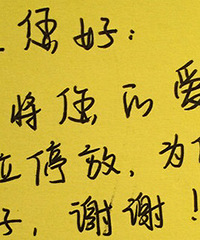 您好：
将您的爱
位停放，为
子，谢谢！